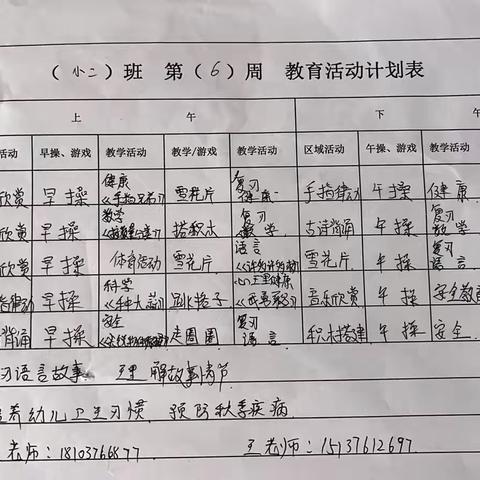 （小二）班 第（6）周 教育活动计划表
上 午 下 午
活动 早操、游戏 教学活动 教学/游戏 教学活动 区域活动 午操、游戏 教学活动
欣赏 早操 健康《手指兄弟》 雪花片 复习健康 手指律动 午操 健康
欣赏 早操 数学 搭积木 复习数学 古诗背诵 午操 复习数学
欣赏 早操 体育活动 雪花片 语言 雪花片 午操 复习语言
律动 早操 科学 跳格子 心卫生健康 音乐欣赏 午操 安全教育
背诵 早操 安全 走圆圈 复习语言 积木搭建 午操 安全
习语言故事 理解故事情节
养幼儿卫生习惯 预防秋季疾病
老师：18103766877 王老师：15137612697